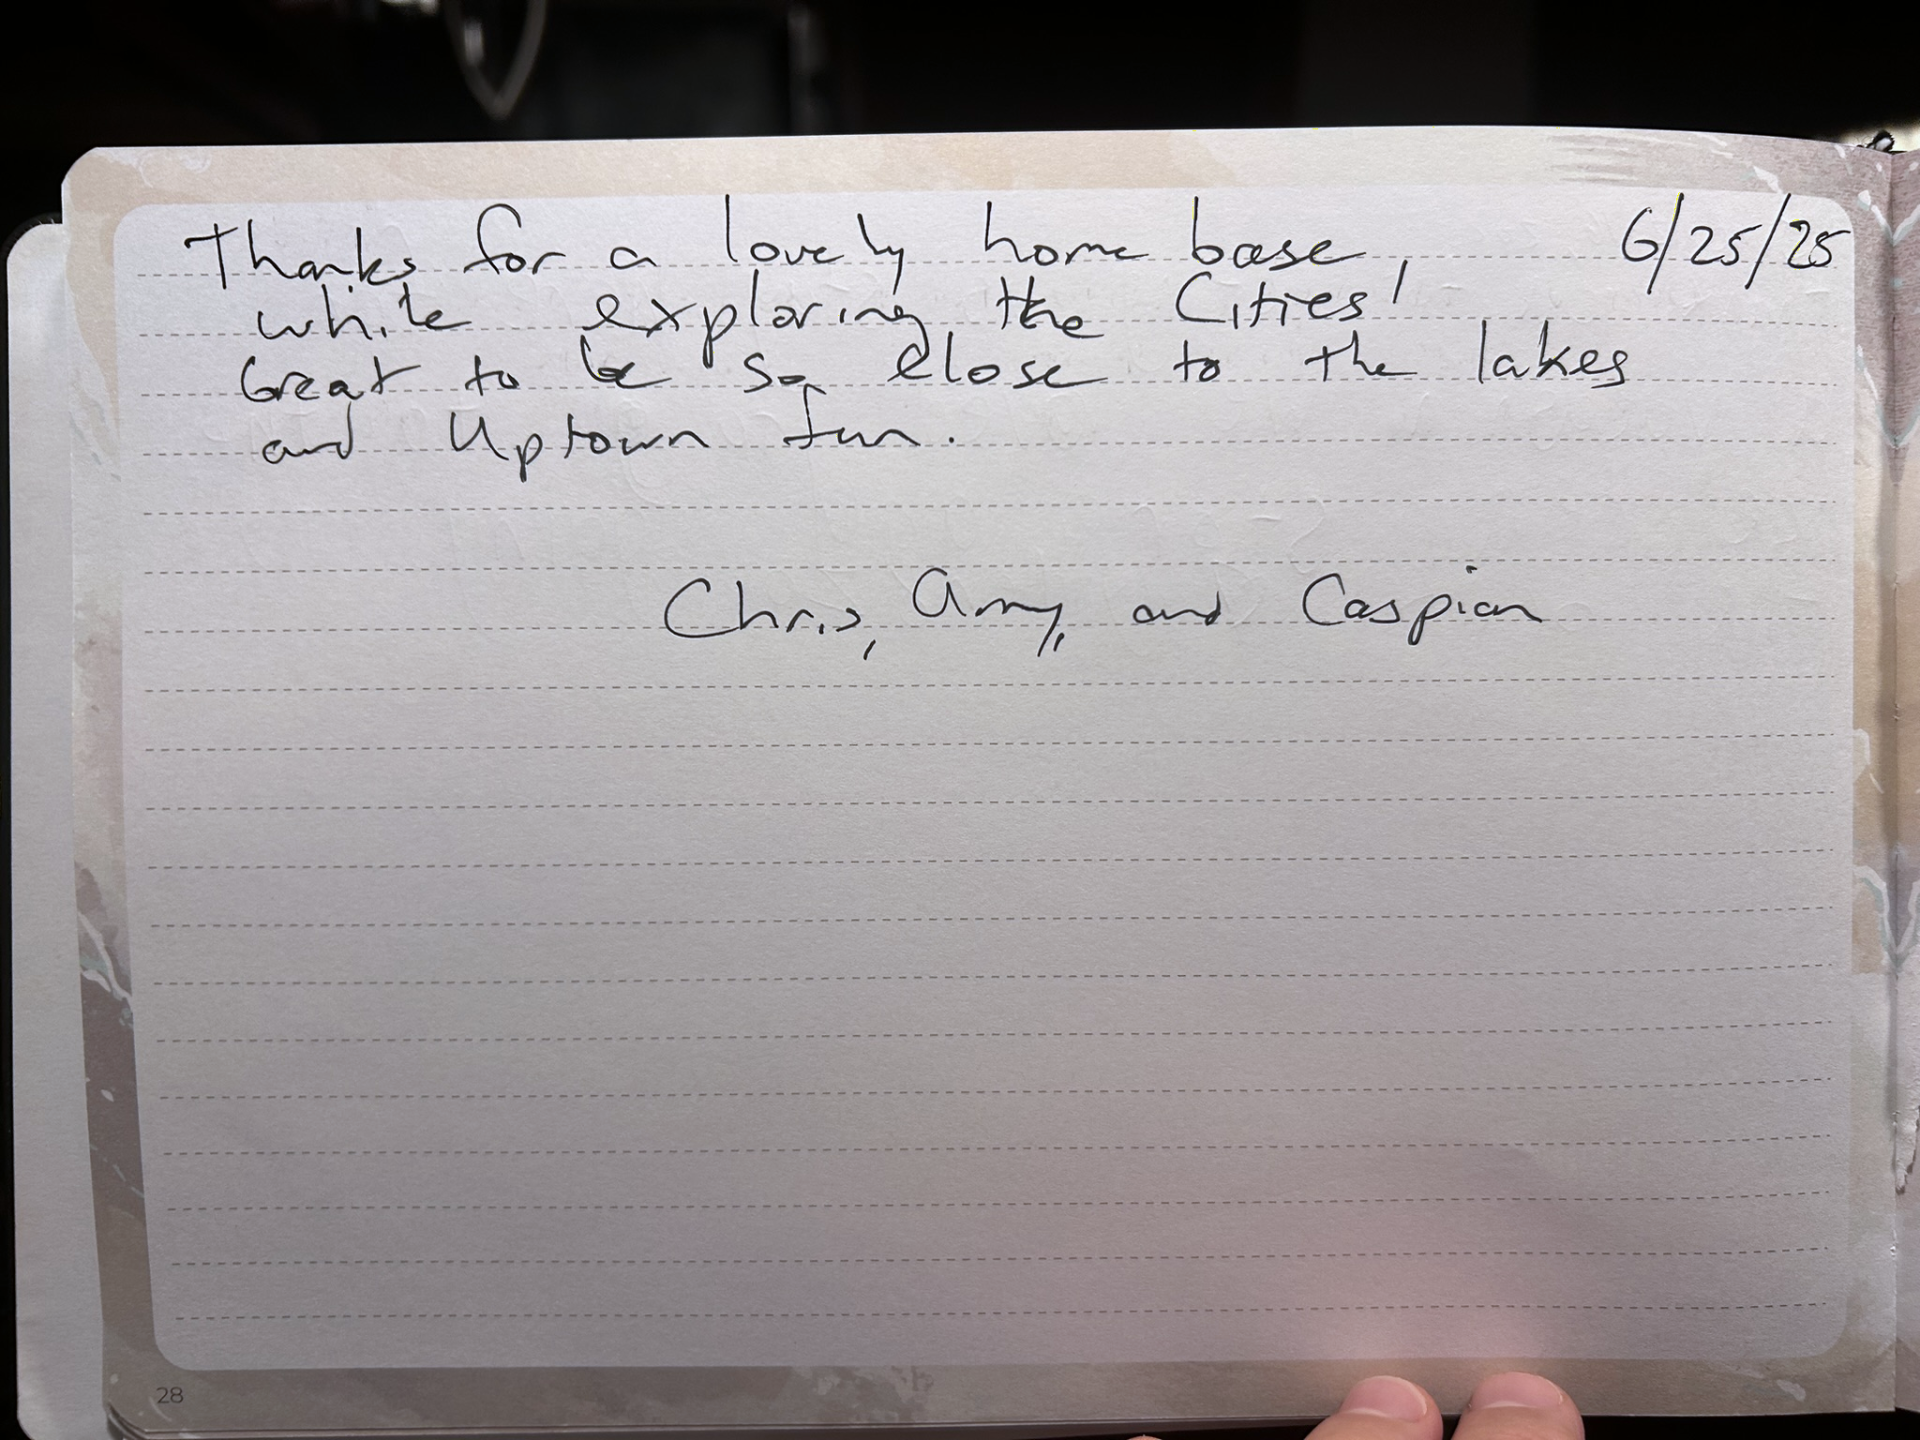 Thanks for a lovely home base, 6/25/25
while exploring the Cities!
Great to be so close to the lakes
and Uptown fun.
Chris, Amy, and Caspian
28